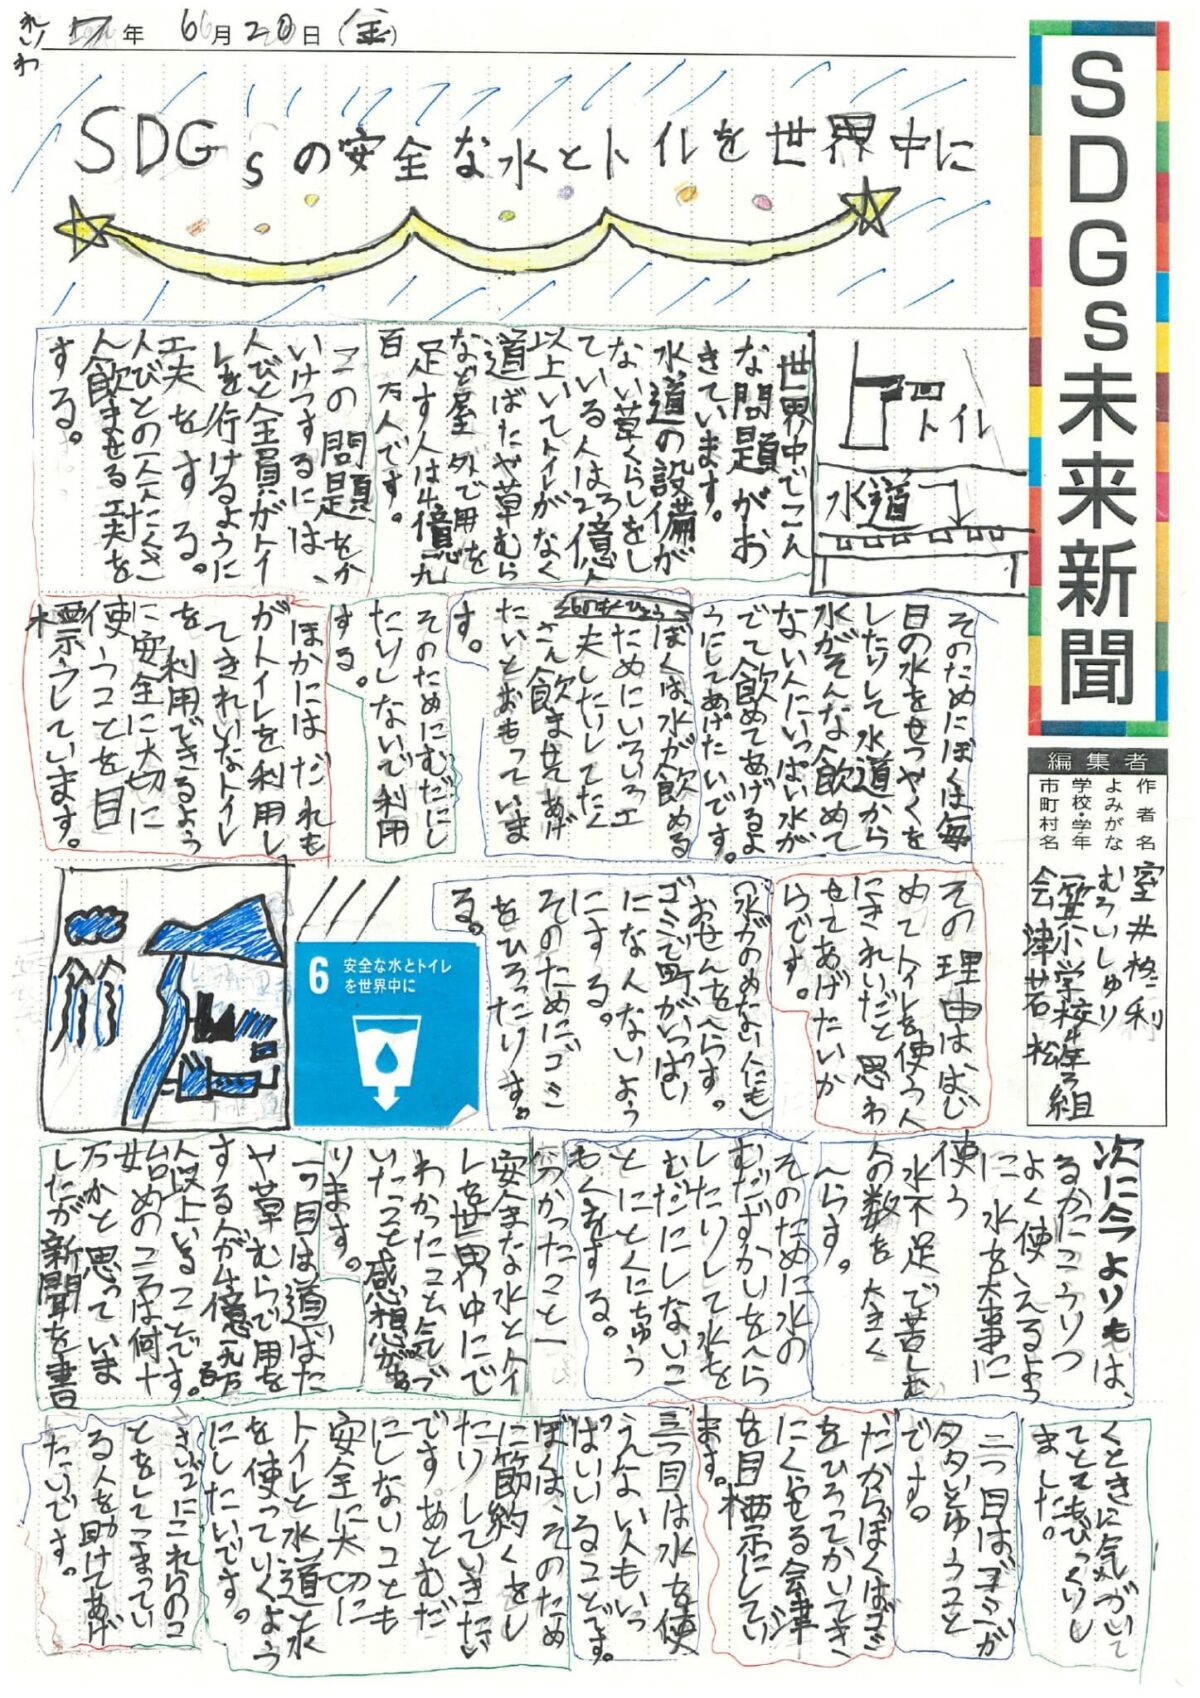 れいわ7年 6月20日(金)
SDGs未来新聞
SDGsの安全な水とトイレを世界中に
編集者
作者名
よみがな
学校・学年
市町村名
むろいしゅり
会津若松
トイレ
水道
世界中でこん
な問題がお
きています。
水道の設備が
ない草くらしをし
ている人は22億人
以上いてトイレがなく
道ばたや草むら
など屋外で用を
足す人は4億一九
百万人です。
この問題をか
いけつするには、
人びと全員がトイ
レを行けるように
工夫をする。
人びとの一人一人にたくさ
ん飲ませる工夫を
する。
そのためにぼくは毎
日の水をせつやくを
したりして水道から
水がそんな飲めて
ない人にいっぱい水が
でて飲めてあげるよ
うにしてあげたいです。
ぼくは水が飲める
ためにいろいろ工
夫したいしてたく
さん飲ませてあげ
たいとおもっていま
す。
そのためにむだにし
たりしないで利用
する。
ほかにはだれも
がトイレを利用し
てきれいなトイレ
を利用できるよう
に安全に大切に
使うことを目
標うしています。
その理由ははじ
めてトイレを使う人
にきれいだと思わ
せてあげたいか
らです。
(水がのめない人にも)
おせんをへらす。
ゴミで町がいっぱい
になんないよう
にする。
そのためにゴミ
をひろったりす。
る。
6 安全な水とトイレ
を世界中に
次に今よりもは、
るかにこうりつ
よく使えるよう
に水を大事に
使う
水不足で苦しむ
人の数を大きく
へらす。
そのために水の
むだずかいをへら
したりして水を
むだにしないこ
とにとくにちゅう
もくをする。
分かったこと一
安全まな水とトイ
レを世界中にで
わかったこと気づ
いたこと感想があ
ります。
一つ目は道ばた
や草むらで用を
する人が4億一九百万
人以上いることです。
始めのころは何十
万かと思っていま
したが新聞を書
くときに気がついて
とてもびっくりし
ました。
二つ目はゴミが
タタいとゆうこと
です。
だからぼくはゴミ
をひろってかいてき
にくらせる会津
を目標にしてい
ます。
三つ目は水を使
うんない人もいっ
ぱいいることです。
ぼくは、そのため
に節約くをし
たりしていきたい
です。あとむだ
にしないことも
安全に大切に
トイレと水道と水
を使っていくよう
にしたいです。
さいごにこれらのこ
とをしてこまってい
る人を助けてあげ
たいです。